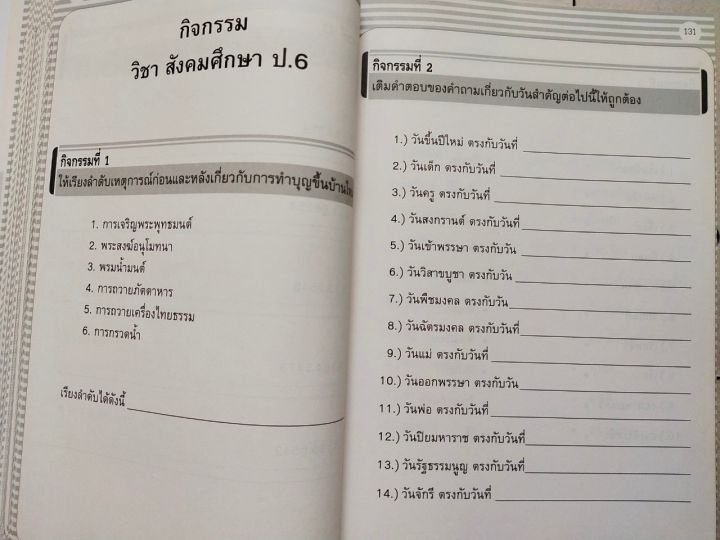 กิจกรรม
วิชา สังคมศึกษา ป.6
กิจกรรมที่ 1
ให้เรียงลำดับเหตุการณ์ก่อนและหลังเกี่ยวกับการทำบุญขึ้นบ้านใหม่
1. การเจริญพระพุทธมนต์
2. พระสงฆ์อนุโมทนา
3. พรมน้ำมนต์
4. การถวายภัตตาหาร
5. การถวายเครื่องไทยธรรม
6. การกรวดน้ำ
เรียงลำดับได้ดังนี้
131
กิจกรรมที่ 2
เติมคำตอบของคำถามเกี่ยวกับวันสำคัญต่อไปนี้ให้ถูกต้อง
1.) วันขึ้นปีใหม่ ตรงกับวันที่
2.) วันเด็ก ตรงกับวันที่
3.) วันครู ตรงกับวันที่
4.) วันสงกรานต์ ตรงกับวันที่
5.) วันเข้าพรรษา ตรงกับวัน
6.) วันวิสาขบูชา ตรงกับวัน
7.) วันพืชมงคล ตรงกับวัน
8.) วันฉัตรมงคล ตรงกับวันที่
9.) วันแม่ ตรงกับวันที่
10.) วันออกพรรษา ตรงกับวัน
11.) วันพ่อ ตรงกับวันที่
12.) วันปิยมหาราช ตรงกับวันที่
13.) วันรัฐธรรมนูญ ตรงกับวันที่
14.) วันจักรี ตรงกับวันที่